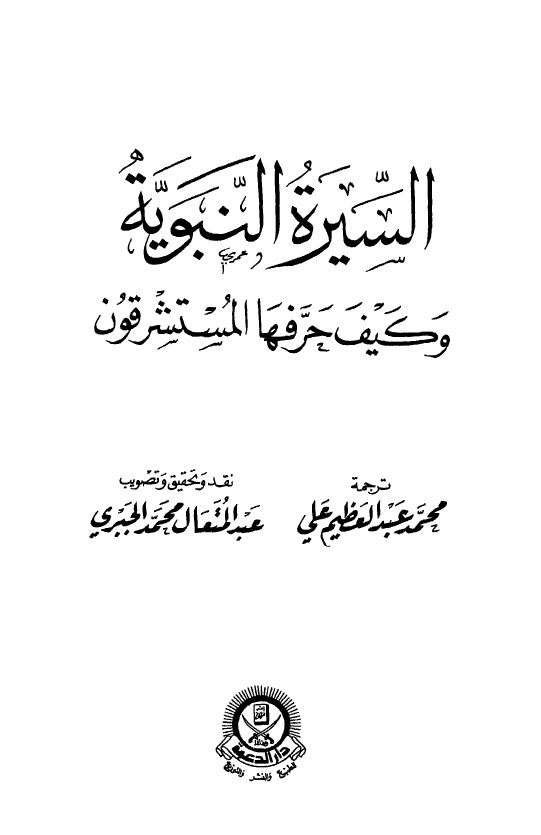 السِّيرَةُ النَّبَوِيَّةُ
وَكَيْفَ حَرَّفَهَا المُسْتَشْرِقُونَ
ترجمة
محمَّد عَبد العَظِيم عَلي
نقد وَتحقيق وَتصويب
عَبْد المُتَعَال محمَّد الجَبْري
دار الدعوة
للطبع والنشر والتوزيع